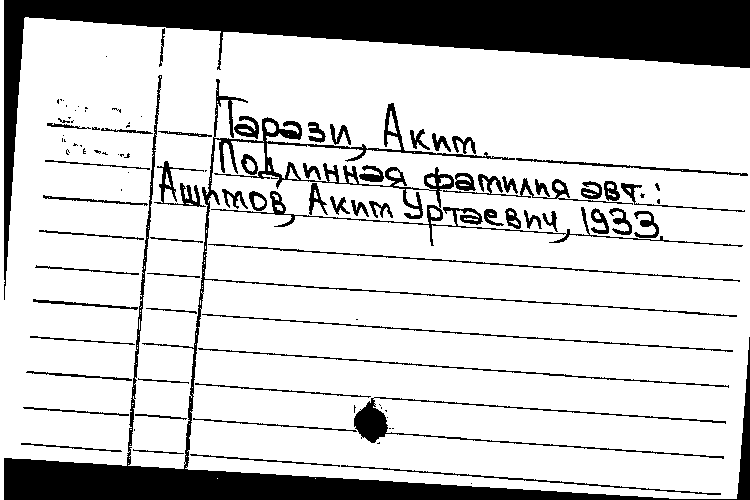 Тарази, Аким.
Подлинная фамилия авт.:
Ашимов, Аким Уртаевич, 1933.